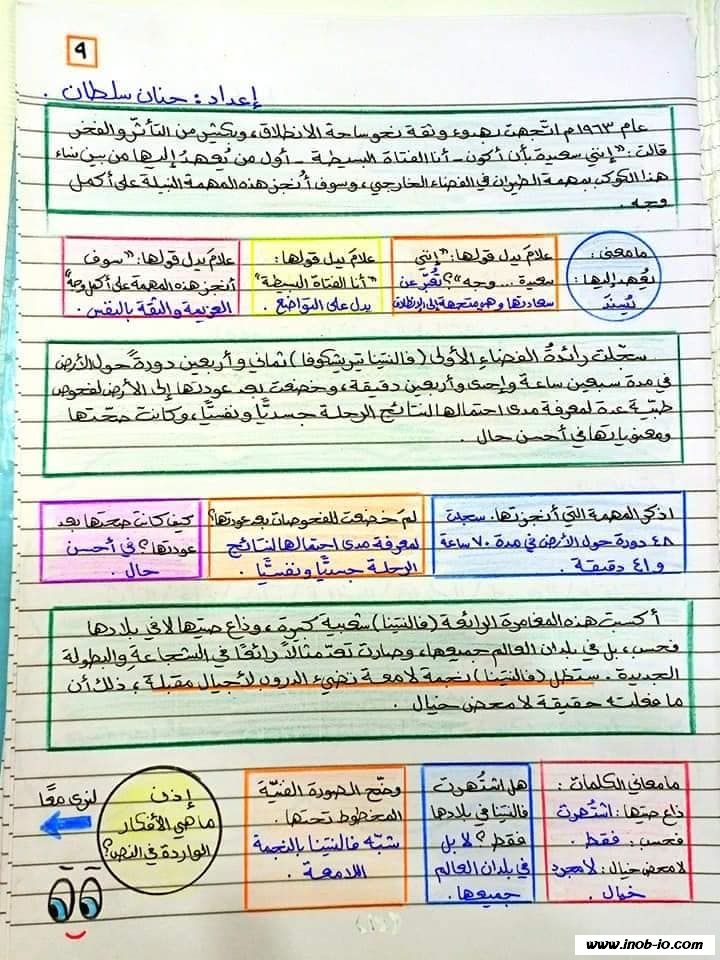 ٩
إعداد: حنان سلطان.
عام ١٩٦٣م اتّجهت بهدوء وثقة نحو ساحة الانطلاق، وبكثير من التأثر والفخر
قالت: "إنني سعيدة بأن أكون - أنا الفتاة البسيطة - أول من يُعهدُ إليها من بين نساء
هذا الكوكب بمهمة الطيران في الفضاء الخارجي، وسوف أُنجز هذه المهمة النبيلة على أكمل
وجه.
ما معنى:
يُعهد إليها:
يُسند
علامَ يدل قولها: "إنني
سعيدة ... وجه"؟ تُعبّر عن
سعادتها وهي متجهة إلى الانطلاق
علامَ يدل قولها:
"أنا الفتاة البسيطة"
يدل على التواضع.
علامَ يدل قولها: "سوف
أنجز هذه المهمة على أكمل وجه"
العزيمة والثقة بالنفس.
سجّلت رائدةُ الفضاءِ الأولى (فالنتينا تريشكوفا) ثماني وأربعين دورةً حول الأرض
في مدة سبعين ساعة وإحدى وأربعين دقيقة، وخضعت بعد عودتها إلى الأرض لفحوص
طبيّة عدة لمعرفة مدى احتمالها لنتائج الرحلة جسديًّا ونفسيًّا، وكانت صحّتها
ومعنوياتها في أحسن حال.
اذكر المهمة التي أنجزتها. سجلت
٤٨ دورة حول الأرض في مدة ٧٠ ساعة
و ٤١ دقيقة.
لمَ خضعت للفحوصات بعد عودتها؟
لمعرفة مدى احتمالها لنتائج
الرحلة جسديًّا ونفسيًّا.
كيف كانت صحتها بعد
عودتها؟ في أحسن
حال.
أكسبت هذه المغامرة الرائعة (فالنتينا) شعبية كبيرة، وذاع صيتها لا في بلادها
فحسب، بل في بلدان العالم جميعها، وصارت تعدّ مثالًا رائعًا في الشجاعة والبطولة
الجديرة. ستظل (فالنتينا) نجمة لامعة تضيء الدروب لأجيال مقبلة، ذلك أن
ما فعلته حقيقة لا محض خيال.
ما معاني الكلمات:
ذاع صيتها: اشتُهرت
فحسب: فقط.
لا محض خيال: لا مجرد
خيال.
هل اشتُهرت
فالنتينا في بلادها
فقط؟ لا بل
في بلدان العالم
جميعها.
وضّح الصورة الفنيّة
المخطوط تحتها.
شبّه فالنتينا بالنجمة
اللامعة.
إذن
ما هي الأفكار
الواردة في النص؟
لنرى معًا
www.inob-io.com